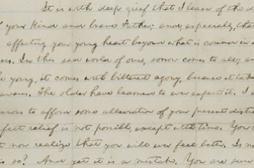 It is with deep grief that I learn of the d
your kind and brave Father; and, especially, that
affecting your young heart beyond what is common in s
In this sad world of ours, sorrow comes to all; and
young, it comes with bitterest agony, because it ta
The older have learned to ever expect it. I
to afford some alleviation of your present distr
relief is not possible, except with time. You
now realize that you will ever feel better. Is no
so? And yet it is a mistake. You are sure